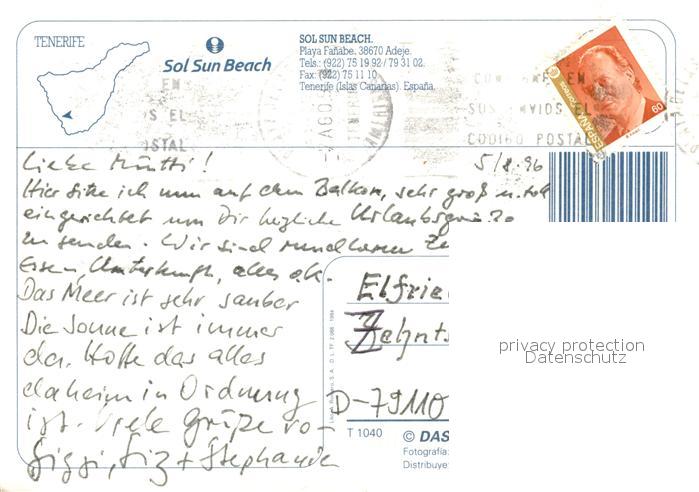 TENERIFE
Sol Sun Beach
SOL SUN BEACH.
Playa Fañabe. 38670 Adeje.
Tels.: (922) 75 19 92 / 79 31 02.
Fax: (922) 75 11 10
Tenerife (Islas Canarias). España.
CODIGO POSTAL
ESPAÑA
60
5/8.96
Liebe Mutti!
Hier sitze ich nun auf dem Balkon, sehr groß u. toll
eingerichtet um Dir herzliche Urlaubsgrüße
zu senden. Wir sind rundherum
Essen, Unterkunft, alles ok.
Das Meer ist sehr sauber
Die Sonne ist immer
da. Hoffe das alles
daheim in Ordnung
ist. Viele Grüße
Siggi, + Stephanie
Elfrie
D-79110
T 1040
© DAS
Fotografía:
Distribuye:
privacy protection
Datenschutz